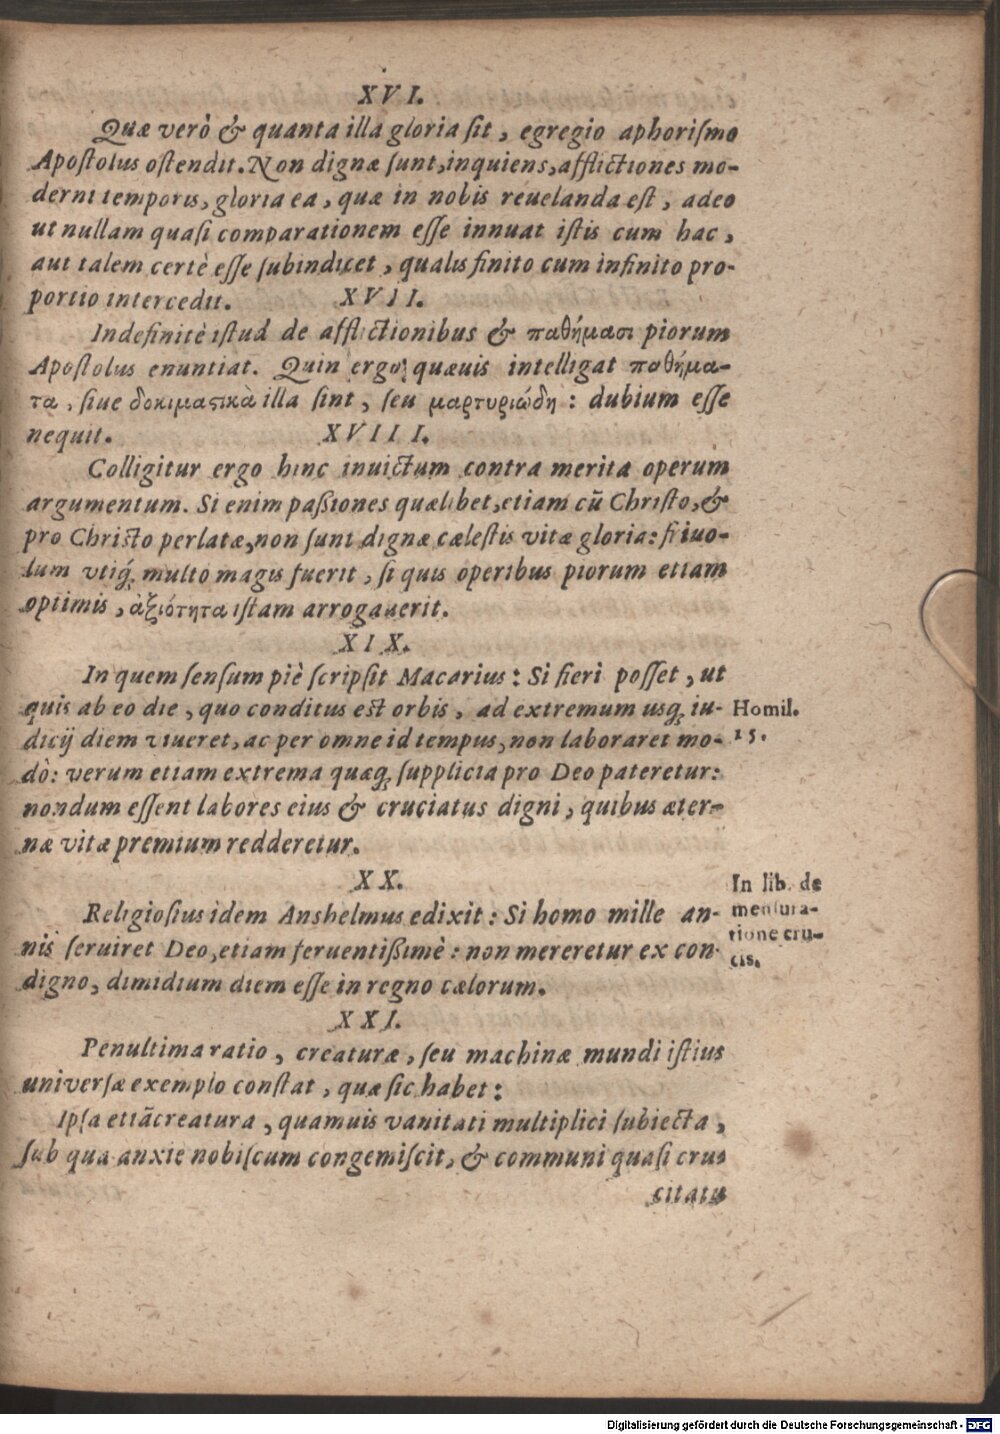 XVI.
Quæ verò & quanta illa gloria ſit, egregio aphoriſmo
Apoſtolus oſtendit. Non dignæ ſunt, inquiens, afflictiones mo-
derni temporis, gloria ea, quæ in nobis reuelanda eſt, adeo
ut nullam quaſi comparationem eſſe innuat iſtis cum hac,
aut talem certè eſſe ſubindicet, qualis finito cum infinito pro-
portio intercedit. XVII.
Indefinitè iſtud de afflictionibus & παθήμασι piorum
Apoſtolus enuntiat. Quin ergo quæuis intelligat παθήμα-
τα, ſiue δοκιμαϛικὰ illa ſint, ſeu μαρτυριώδη: dubium eſſe
nequit. XVIII.
Colligitur ergo hinc inuictum contra merita operum
argumentum. Si enim paßiones quælibet, etiam cũ Chriſto, &
pro Chriſto perlatæ, non ſunt dignæ cæleſtis vitæ gloria: friuo-
lum vtiq́; multo magis fuerit, ſi quis operibus piorum etiam
optimis, ἀξιότητα iſtam arrogauerit.
XIX.
In quem ſenſum piè ſcripſit Macarius: Si fieri poſſet, ut
quis ab eo die, quo conditus eſt orbis, ad extremum usq; iu-
dicij diem viueret, ac per omne id tempus, non laboraret mo-
dò: verum etiam extrema quæq; ſupplicia pro Deo pateretur:
nondum eſſent labores eius & cruciatus digni, quibus æter-
næ vitæ premium redderetur.
Homil.
15.
XX.
Religioſius idem Anshelmus edixit: Si homo mille an-
nis ſeruiret Deo, etiam feruentißimè: non mereretur ex con-
digno, dimidium diem eſſe in regno cælorum.
In lib. de
menſura-
tione cru-
cis.
XXI.
Penultima ratio, creaturæ, ſeu machinæ mundi iſtius
univerſæ exemplo conſtat, quæ ſic habet:
Ipſa etiã creatura, quamuis vanitati multiplici ſubiecta,
ſub qua anxie nobiſcum congemiſcit, & communi quaſi cru-
citatu
Digitalisierung gefördert durch die Deutsche Forschungsgemeinschaft - DFG